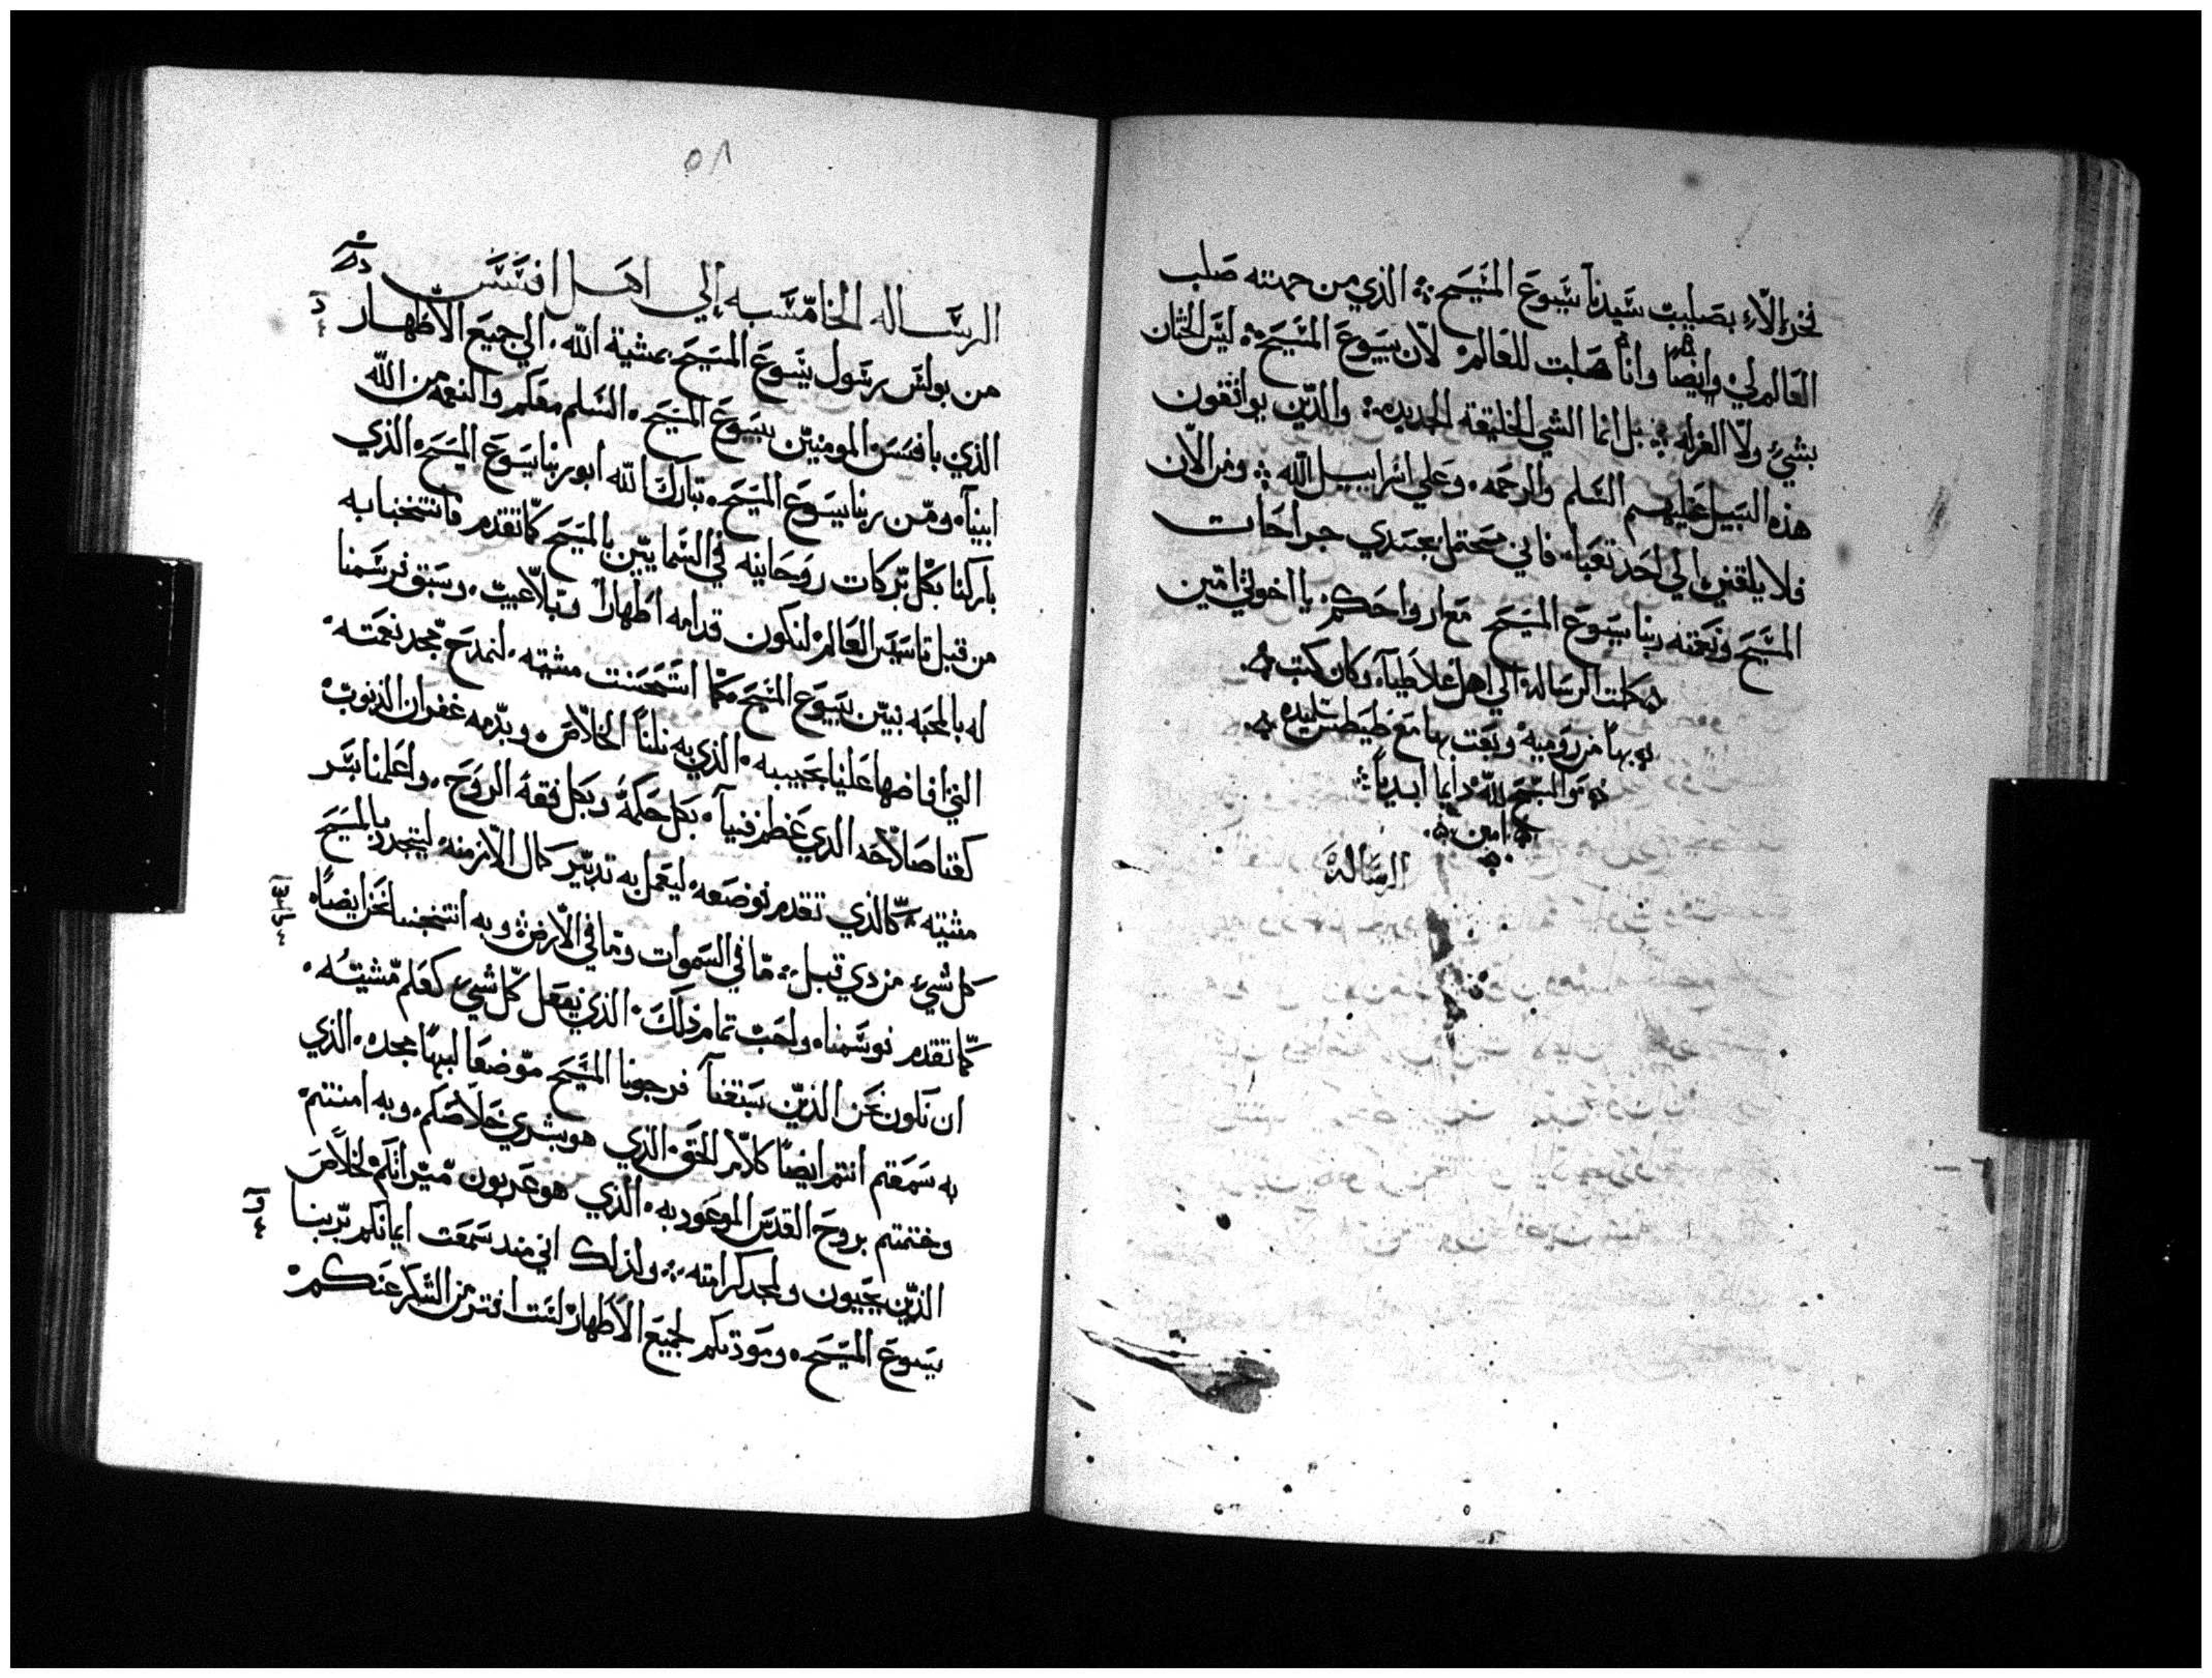 فخري الّا بصليب سيدنا يسوع المسيح الذي من جهته صلب
العالم لي وايضًا وانا صلبت للعالم لان يسوع المسيح ليس الختان
بشيء ولا الغرله بل انما الشي الخليقة الجديده والذين يوافقون
هذه السبيل عليهم السلم والرحمه وعلي اسراييل الله ومن الان
فلا يلقين الي احد تعبا فاني محتمل بجسدي جراحات
المسيح ونعمته ربنا يسوع المسيح مع ارواحكم يا اخوتي امين
كملت الرسالة الي اهل غلاطيا وكان كتب
بها من روميه وبعت بها مع طيطس تلميده
والسبح لله دايما ابديا
امين
الرسالة
٥٨
الرساله الخامسه إلي اهل افسس
من بولس رسول يسوع المسيح بمشية الله الي جميع الاطهار
الذي بافسس المومنين بيسوع المسيح السلم معكم والنعمه من الله
ابينا ومن ربنا يسوع المسيح تبارك الله ابو ربنا يسوع المسيح الذي
باركنا بكل بركات روحانيه في السماييين بالمسيح كما تقدم فانتخبنا به
من قبل تاسيس العالم لنكون قدامه اطهارا وبلا عيب وسبق فرسمنا
له بالمحبه ببين يسوع المسيح كما استحسنت مشيته لنمدح مجد نعمته
التي افاضها علينا بحبيبه الذي به نلنا الخلاص وبدمه غفران الذنوب
كغنا صلاحه الذي عظم فينا بكل حكمة وبكل فقه الروح واعلمنا بسر
مشيته كالذي تقدم فوضعه ليعمل به تدبير كمال الازمنه ليتجدد بالمسيح
كل شيء من دي قبل ما في السموات وما في الارض وبه انتخبنا نحن ايضًا
كما تقدم فوسمنا واحب تمام ذلك الذي يفعل كل شيء كعلم مشيته
ان نكون نحن الذين سبقنا فرجونا المسيح موضعا لبها مجده الذي
به سمعتم انتم ايضًا كلام الحق الذي هو بشري خلاصكم وبه امنتم
وختمتم بروح القدس الموعود به الذي هو عربون ميراثكم لخلاص
الذين يحيون ولمجد كرامته ولذلك اني مند سمعت ايمانكم بربنا
يسوع المسيح ومودتكم لجميع الاطهار لست افتر من الشكر عنكم